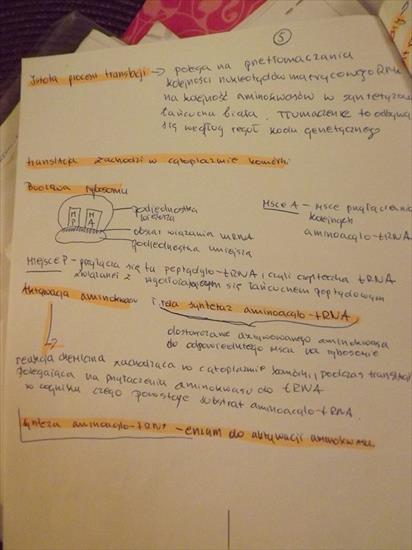 5
Istota procesu translacji → polega na przetłumaczaniu
kolejności nukleotydów matrycowego RNA
na kolejność aminokwasów w syntetyzow
łańcuchu białka. Tłumaczenie to odbywa
się według reguł kodu genetycznego
translacja zachodzi w cytoplazmie komórki
Budowa rybosomu
podjednostka
większa
M P
M A
obszar wiązania mRNA
podjednostka mniejsza
Miejsce A - miejsce przyłączenia
kolejnych
aminoacylo-tRNA
Miejsce P - przyłącza się tu peptydylo-tRNA, czyli cząsteczka tRNA
związanej z wydłużającym się łańcuchem peptydowym
Aktywacja aminokwasów i rola syntetaz aminoacylo-tRNA
dostarczanie aktywowanego aminokwasu
do odpowiedniego miejsca na rybosomie
reakcja chemiczna zachodząca w cytoplazmie komórki, podczas translacji
polegająca na przyłączeniu aminokwasu do tRNA
w wyniku czego powstaje substrat aminoacylo-tRNA.
aminoacylo-tRNA - enzym do aktywacji aminokwasu